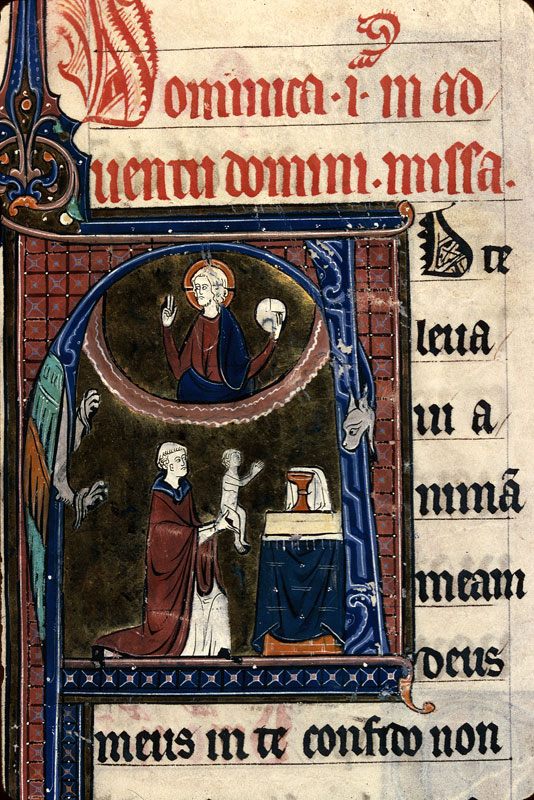 Dominica · i · in ad
uentu domini. missa.
A
D te
leua
ui a
nimã
meam
deus
meus in te confido non